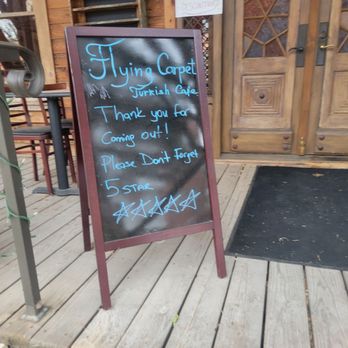 Flying Carpet
Turkish Cafe
Thank you for
Coming out!
Please Don't Forget
5 STAR